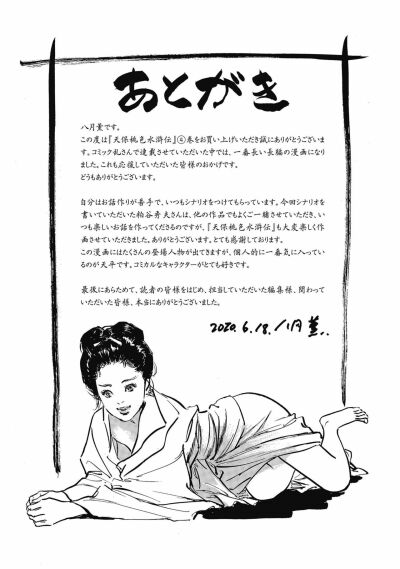 あとがき
八月薫です。
この度は『天保桃色水滸伝』④巻をお買い上げいただき誠にありがとうございま
す。コミック乱さんで連載させていただいた中では、一番長い長編の漫画になり
ました。これも応援していただいた皆様のおかげです。
どうもありがとうございます。
自分はお話作りが苦手で、いつもシナリオをつけてもらっています。今回シナリオを
書いていただいた粕谷秀夫さんは、他の作品でもよくご一緒させていただき、い
つも楽しいお話を作ってくださるのですが、『天保桃色水滸伝』も大変楽しく作
画させていただきました。ありがとうございます。とても感謝しております。
この漫画にはたくさんの登場人物が出てきますが、個人的に一番気に入ってい
るのが天平です。コミカルなキャラクターがとても好きです。
最後にあらためて、読者の皆様をはじめ、担当していただいた編集様、関わって
いただいた皆様、本当にありがとうございました。
2020.6.18. 八月薫.